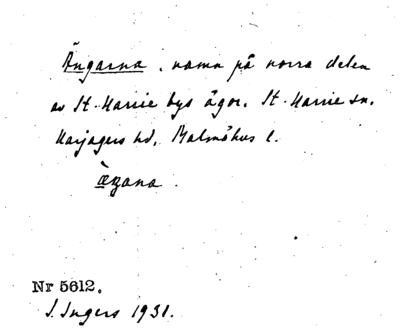 Ängarna. namn på norra delen
av St. Harrie bys ägor. St. Harrie sn.
Harjagers hd, Malmöhus l.
Nr 5612.
I. Ingers 1931.